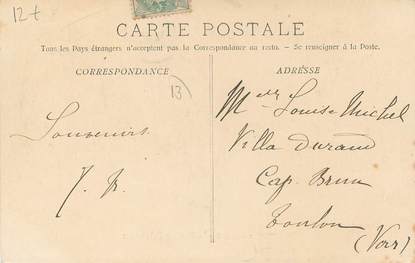 12+
CARTE POSTALE
Tous les Pays étrangers n'acceptent pas la Correspondance au recto. — Se renseigner à la Poste.
CORRESPONDANCE
13
Souvenirs
ADRESSE
Melle Louise Michel
Villa Durand
Cap Brun
Toulon
(Var)